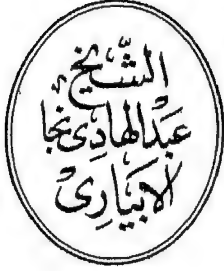 الشيخ
عبد الهادى نجا
الابيارى